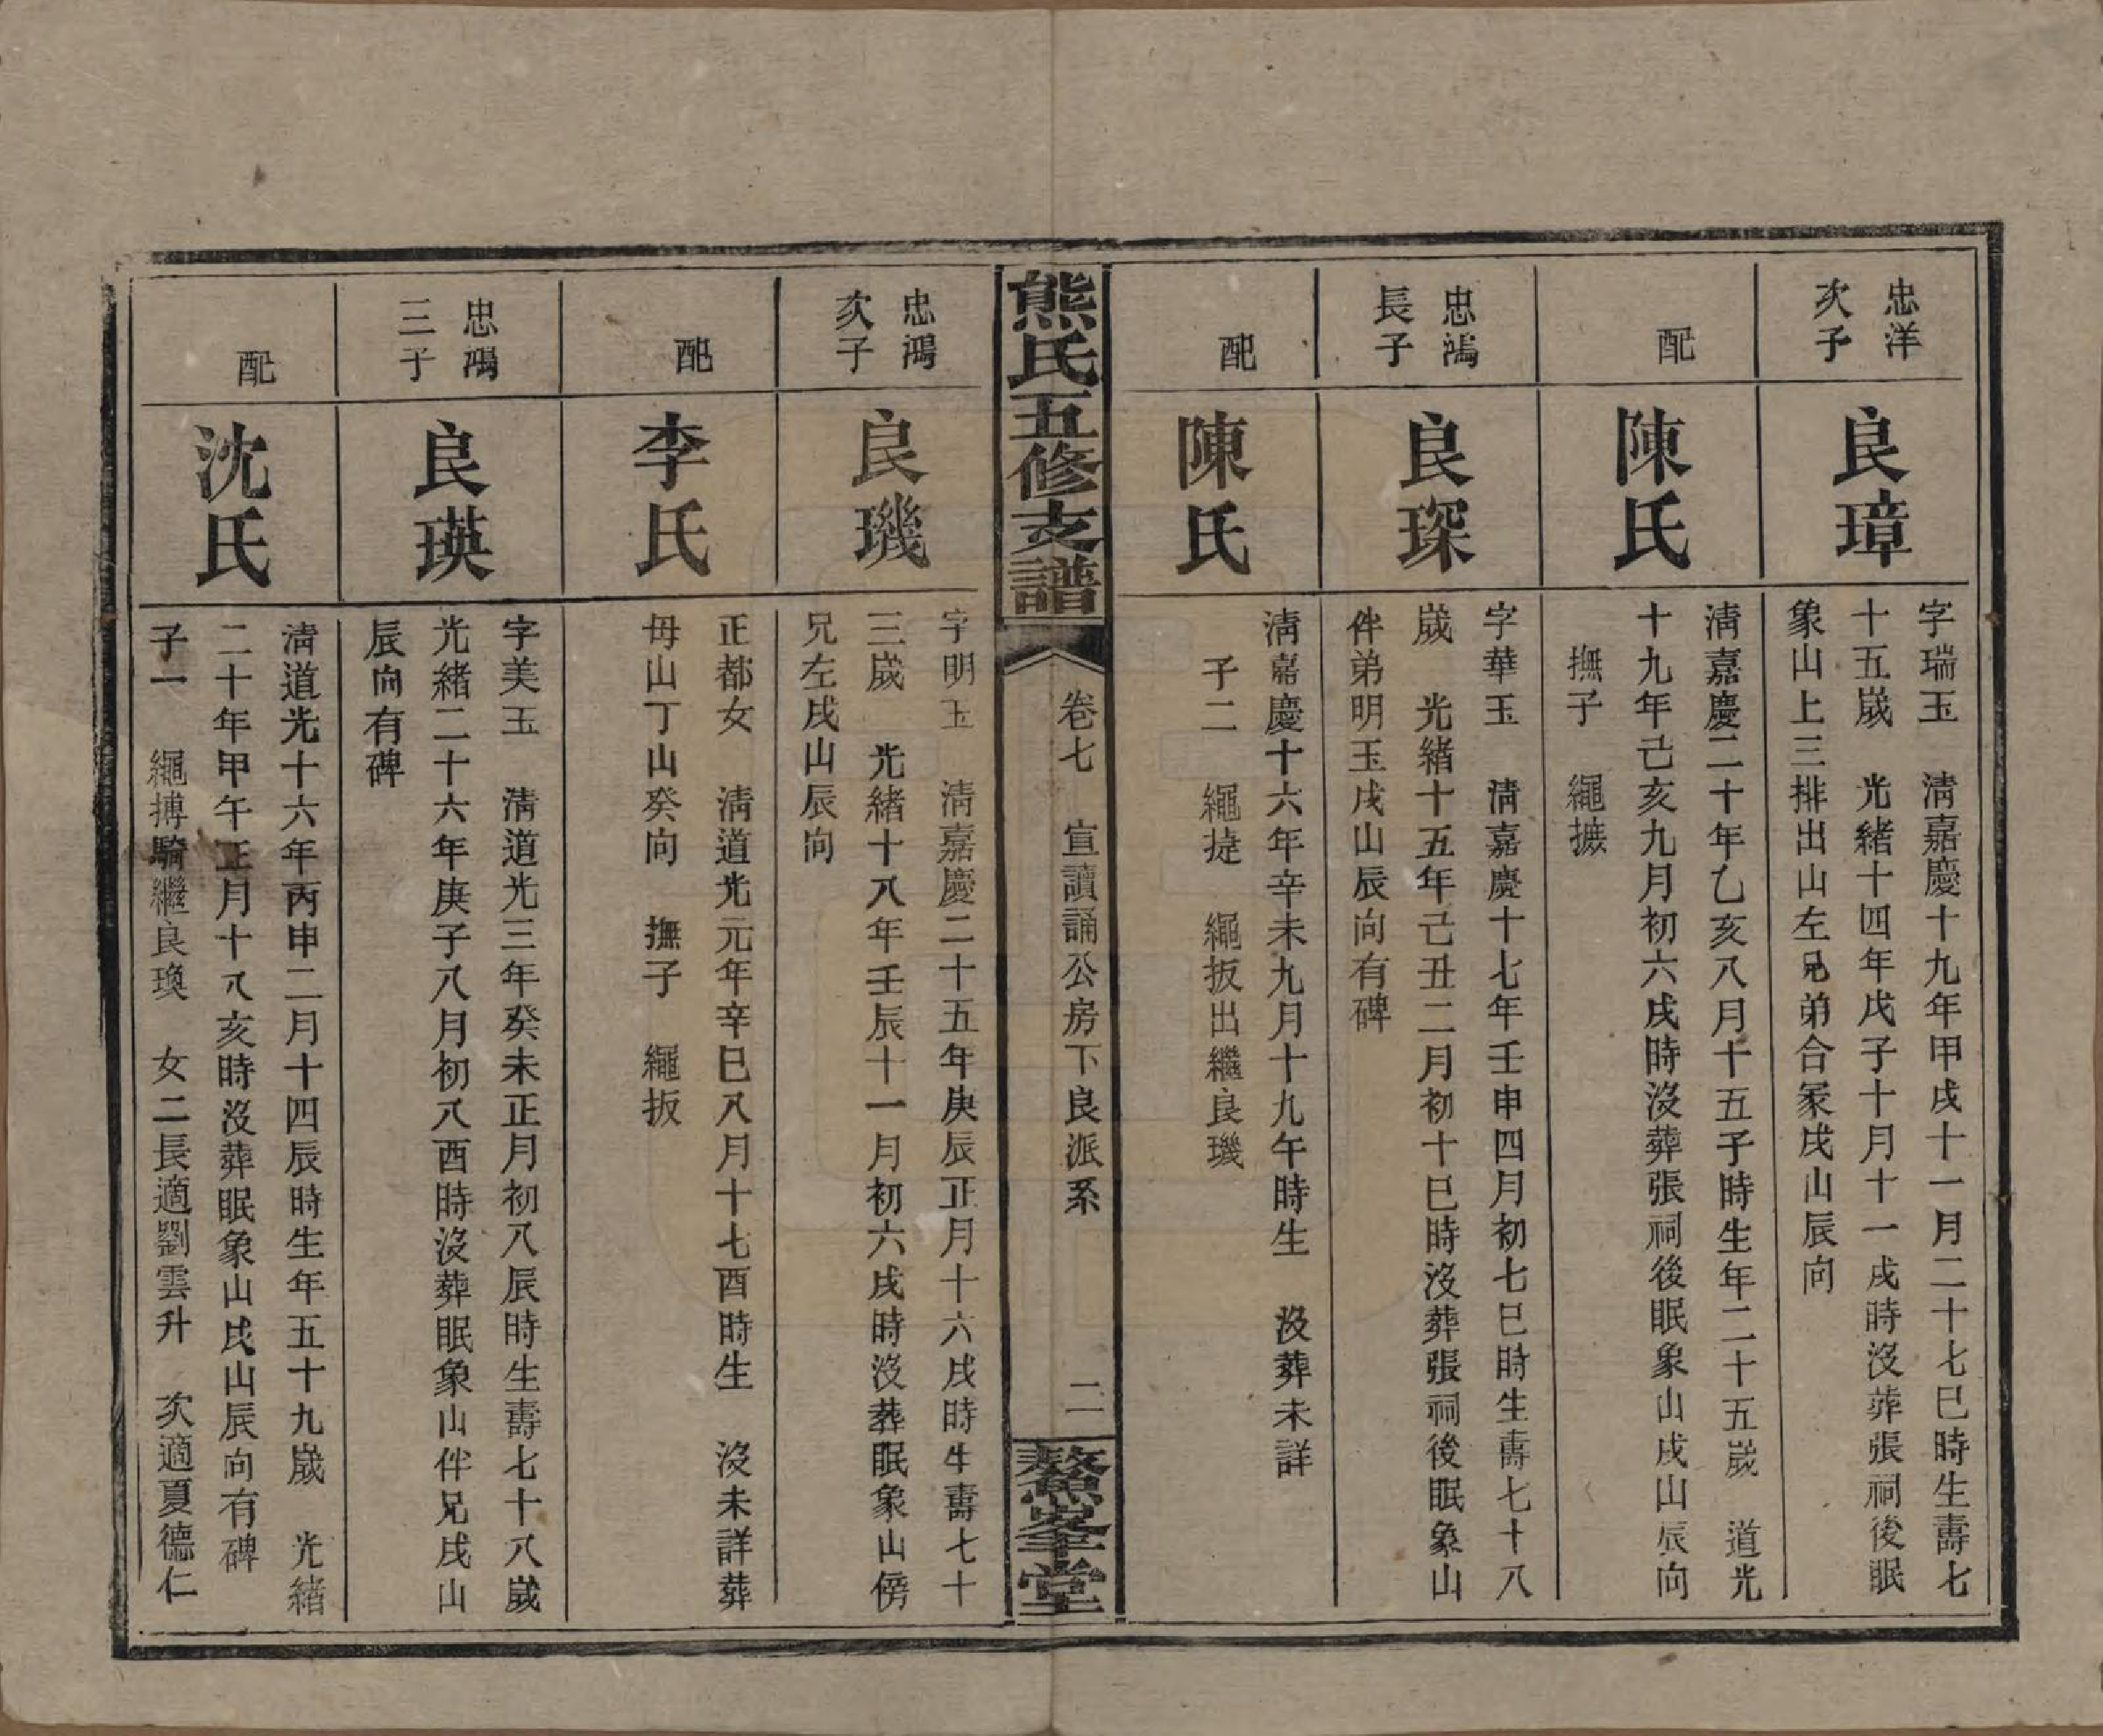 忠洋
次子
良璋
字瑞玉　清嘉慶十九年甲戌十一月二十七巳時生壽七
十五歲　光緒十四年戊子十月十一戌時沒葬張祠後眠
象山上三排出山左兄弟合冢戌山辰向
配
陳氏
清嘉慶二十年乙亥八月十五子時生年二十五歲　道光
十九年己亥九月初六戌時沒葬張祠後眠象山戌山辰向
撫子　繩摭
忠鴻
長子
良琛
字華玉　清嘉慶十七年壬申四月初七巳時生壽七十八
歲　光緒十五年己丑二月初十巳時沒葬張祠後眠象山
伴弟明玉戌山辰向有碑
配
陳氏
清嘉慶十六年辛未九月十九午時生　沒葬未詳
子二　繩捷　繩扳出繼良璣
熊氏五修支譜
卷七　宣讀誦公房下良派系
二
鰲峯堂
忠鴻
次子
良璣
字明玉　清嘉慶二十五年庚辰正月十六戌時生壽七十
三歲　光緒十八年壬辰十一月初六戌時沒葬眠象山傍
兄左戌山辰向
配
李氏
正都女　清道光元年辛巳八月十七酉時生　沒未詳葬
毋山丁山癸向　撫子　繩扳
忠鴻
三子
良瑛
字美玉　清道光三年癸未正月初八辰時生壽七十八歲
光緒二十六年庚子八月初八酉時沒葬眠象山伴兄戌山
辰向有碑
配
沈氏
清道光十六年丙申二月十四辰時生年五十九歲　光緒
二十年甲午正月十八亥時沒葬眠象山戌山辰向有碑
子一　繩搏騎繼良瑍　女二長適劉雲升　次適夏德仁